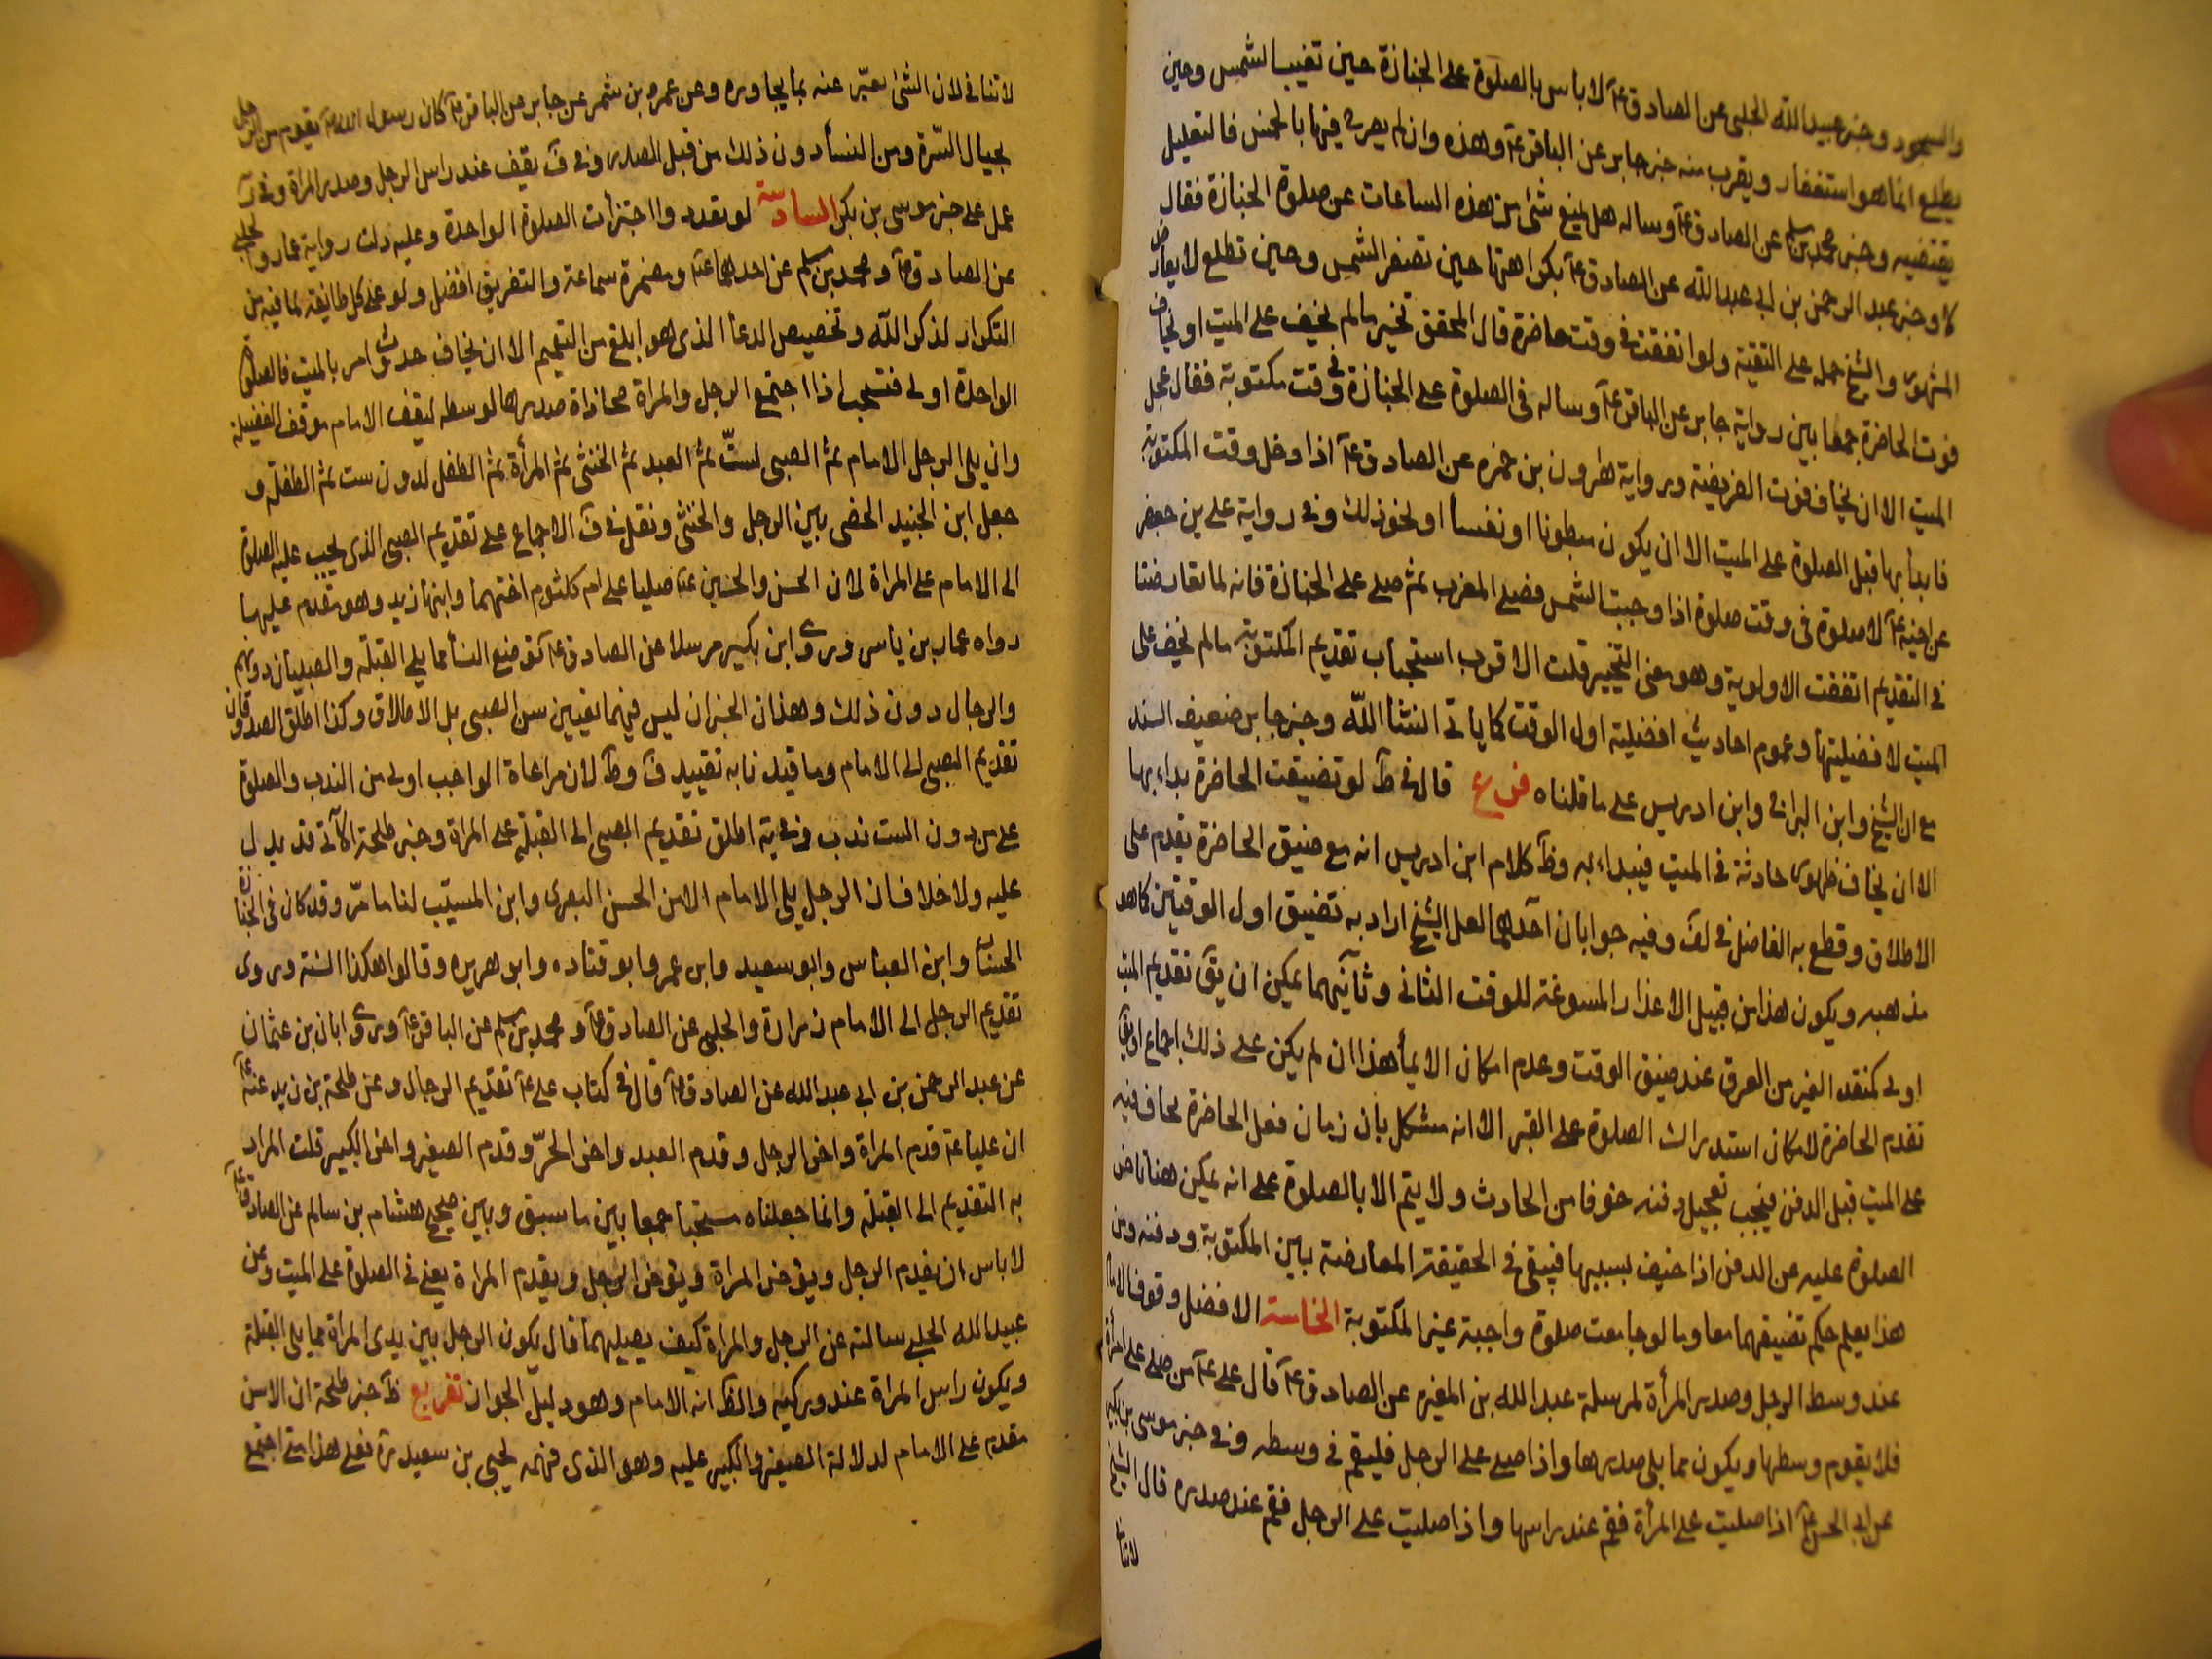 والسجود وخبر عبيد الله الحلبي عن الصادق عۤ لا باس بالصلوة على الجنازة حين تغيب الشمس وحين
يطلع انما هو استغفار ويقرب منه خبر جابر عن الباقر عۤ وهذه وان لم يصرح فيها بالخمس فالتعليل
يقتضيه وخبر محمد بن مسلم عن الصادق عۤ وساله هل يمنع شئ من هذه الساعات عن صلوة الجنازة فقال
لا وخبر عبد الرحمن بن ابي عبد الله عن الصادق عۤ بكراهتها حين تصفر الشمس وحين تطلع لا يعارض
المشهور والشيخ حمله على التقية ولو اتفقت في وقت حاضرة قال المحقق تخير ما لم يخف على الميت او يخاف
فوت الحاضرة جمعا بين رواية جابر عن الباقر عۤ وساله في الصلوة على الجنازة في وقت مكتوبة فقال عجل
الميت الا ان يخاف فوت الفريضة ورواية هارون بن حمزه عن الصادق عۤ اذا دخل وقت المكتوبة
فابدأ بها قبل الصلوة على الميت الا ان يكون مبطونا او نفسأ او نحو ذلك وفي رواية علي بن جعفر
عن اخيه عۤ لا صلوة في وقت صلوة اذا وجبت الشمس فصلي المغرب ثم صلي على الجنازة فانه لما تعارضتا
في التقديم اتفقت الاولوية وهو معنى التخيير قلت الاقرب استحباب تقديم المكتوبة ما لم يخف على
الميت لافضليتها وعموم احاديث افضلية اول الوقت كما ياتي انشأ الله وخبر جابر ضعيف السند
مع ان الشيخ وابن البراج وابن ادريس على ما قلناه فرع قال في طۤ لو تضيقت الحاضرة بداء بها
الا ان يخاف ظهور حادثة في الميت فيبداء به وظۤ كلام ابن ادريس انه مع ضيق الحاضرة يقدم على
الاطلاق وقطع به الفاضل في لفۤ وفيه جوابان احدهما لعل الشيخ اراد به تضييق اول الوقتين كما هو
مذهبه ويكون هذا من قبيل الاعذار المسوغة للوقت الثاني وثانيهما يمكن ان يقۤ تقديم الميت
اولى كمنقذ الغير من الغرق عند ضيق الوقت وعدم امكان الايمأ هذا ان لم يكن على ذلك اجماع او يقۤ
تقدم الحاضرة لامكان استدراك الصلوة على القبر الا انه مشكل بان زمان فعل الحاضرة يخاف فيه
على الميت قبل الدفن فيجب تعجيل دفنه خوفا من الحادث ولا يتم الا بالصلوة على انه يمكن هنا تاخر
الصلوة عليه عن الدفن اذا خيف بسببها فيبقى في الحقيقة المعارضة بين المكتوبة ودفنه ومن
هذا يعلم حكم تضيقهما معا وما لو جامعت صلوة واجبة غير المكتوبة الخامسة الافضل وقوف الامام
عند وسط الرجل وصدر المرأة لمرسلة عبد الله بن المغيره عن الصادق عۤ قال علي عۤ من صلى على المرأة
فلا يقوم وسطها ويكون مما يلي صدرها واذا صلى على الرجل فليقم في وسطه وفي خبر موسى بن بكر
عن ابي الحسن عۤ اذا صليت على المرأة فقم عند راسها واذا صليت على الرجل فقم عند صدره قال الشيخ
لاتنافي
لا تنافي لان الشئ يعبّر عنه بما يجاوره وعن عمرو بن شمر عن جابر عن الباقر عۤ كان رسول الله يقوم من الرجل
بحيال السّرة ومن النسأ دون ذلك من قبل الصدر وفي فۤ يقف عند راس الرجل وصدر المراة وفي رۤ
عمل على خبر موسى بن بكر السادسة لو تعدد والاجتزأت الصلوة الواحدة وعليه دلت رواية عمار والحلبي
عن الصادق عۤ ومحمد بن مسلم عن احدهما عۤ ومضمرة سماعة والتفريق افضل ولو على كل طايفة لما فيه من
التكرار لذكر الله وتخصيص الدعأ الذي هو ابلغ من التعميم الا ان يخاف حدوث امر بالميت فالصلوة
الواحدة اولى فتستحب اذا اجتمع الرجل والمراة محاذاة صدرها لوسطه ليقف الامام موقف الفضيلة
وان يلي الرجل الامام ثم الصبى لستّ ثم العبد ثم الخنثى ثم المرأة ثم الطفل لدون ست ثم الطفلة و
جعل ابن الجنيد الخصى بين الرجل والخنثى ونقل في فۤ الاجماع على تقديم الصبي الذي يجب عليه الصلوة
الى الامام على المراة لان الحسن والحسين عۤ صليا على ام كلثوم اختهما وابنها زيد وهو مقدم عليها
رواه عمار بن ياسر وروى ابن بكير مرسلا عن الصادق عۤ توضع النسأ مما يلي القبلة والصبيان دونهم
والرجال دون ذلك وهذان الخبران ليس فيهما تعيين سن الصبي بل الاطلاق وكذا اطلق الصدوقان
تقديم الصبي الى الامام وما قيدنا به تقييد فۤ وطۤ لان مراعاة الواجب اولى من الندب والصلوة
على من دون الست ندب وفي يۤه اطلق تقديم الصبى الى القبلة على المراة وخبر طلحة الآتي قد يدل
عليه ولا خلاف ان الرجل يلي الامام الا من الحسن البصري وابن المسيّب لنا ما مرّ وقد كان في الجنازة
الحسنان وابن العباس وابو سعيد وابن عمر وابو قتاده وابو هريره وقالوا هكذا السنة وروى
تقديم الرجل الى الامام زرارة والحلبي عن الصادق عۤ ومحمد بن مسلم عن الباقر عۤ وروى ابان بن عثمان
عن عبد الرحمن بن ابي عبد الله عن الصادق عۤ قال في كتاب علي عۤ تقديم الرجال وعن طلحة بن زيد عنه عۤ
ان عليا عۤ قدم المراة واخر الرجل وقدم العبد واخر الحرّ وقدم الصغير واخر الكبير قلت المراد
به التقديم الى القبلة وانما جعلناه مستحبا جمعا بين ما سبق وبين صحيح هشام بن سالم عن الصادق عۤ
لا باس ان يقدم الرجل ويؤخر المراة ويؤخر الرجل ويقدم المراة يعني في الصلوة على الميت وعن
عبيد الله الحلبي سالته عن الرجل والمراة كيف يصلي عليهما قال يكون الرجل بين يدى المراة مما يلي القبلة
ويكون راس المراة عند وركيه والظۤ انه الامام وهو دليل الجواز تفريع ظۤ خبر طلحة ان الاسن
مقدم على الامام لدلالة الصغير والكبير عليه وهو الذي فهمه يحيى بن سعيد ره فعلى هذا متى اجتمع